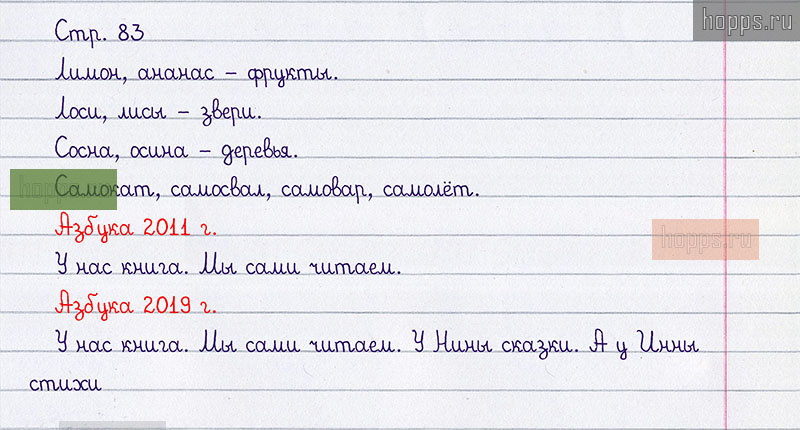 hopps.ru
Стр. 83
Лимон, ананас – фрукты.
Лоси, лисы – звери.
Сосна, осина – деревья.
Самокат, самосвал, самовар, самолёт.
Азбука 2011 г.
hopps.ru
У нас книга. Мы сами читаем.
Азбука 2019 г.
У нас книга. Мы сами читаем. У Нины сказки. А у Инны
стихи